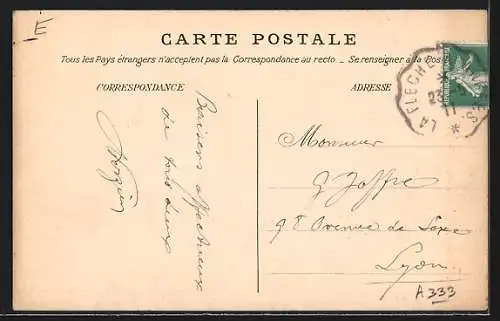 E
CARTE POSTALE
Tous les Pays étrangers n'acceptent pas la Correspondance au recto. _ Se renseigner à la Poste
CORRESPONDANCE
ADRESSE
Baisers affectueux
de
deux
LA FLECHE
23
11
Monsieur
J Joffre
98 Avenue de Saxe
Lyon
A 333